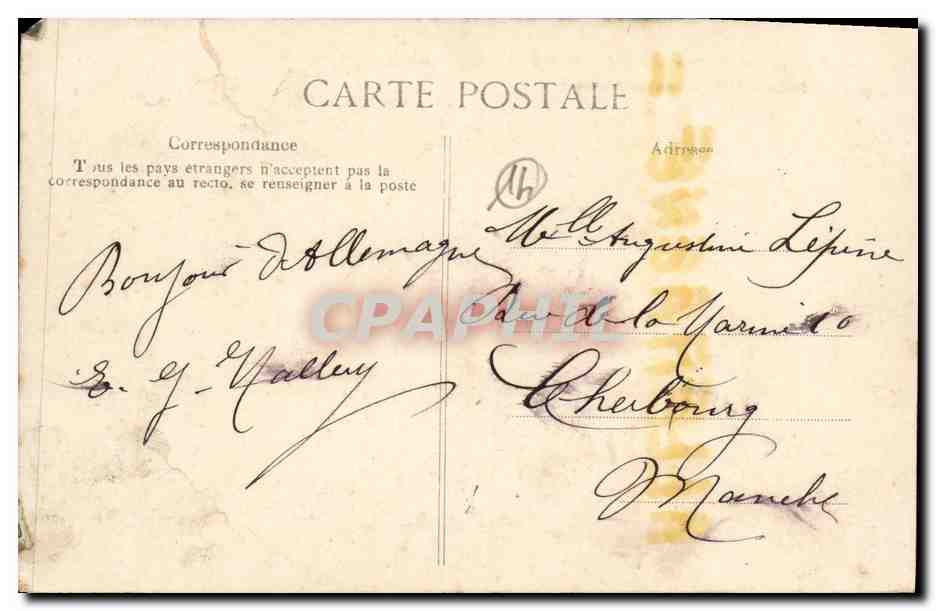 CARTE POSTALE
Correspondance
Tous les pays étrangers n'acceptent pas la
correspondance au recto, se renseigner à la poste
Bonjour d'Allemagne
E. G.
Adresse
14
Melle Augustine Lépine
Rue de la Marine 10
Cherbourg
Manche
CPAPHIL